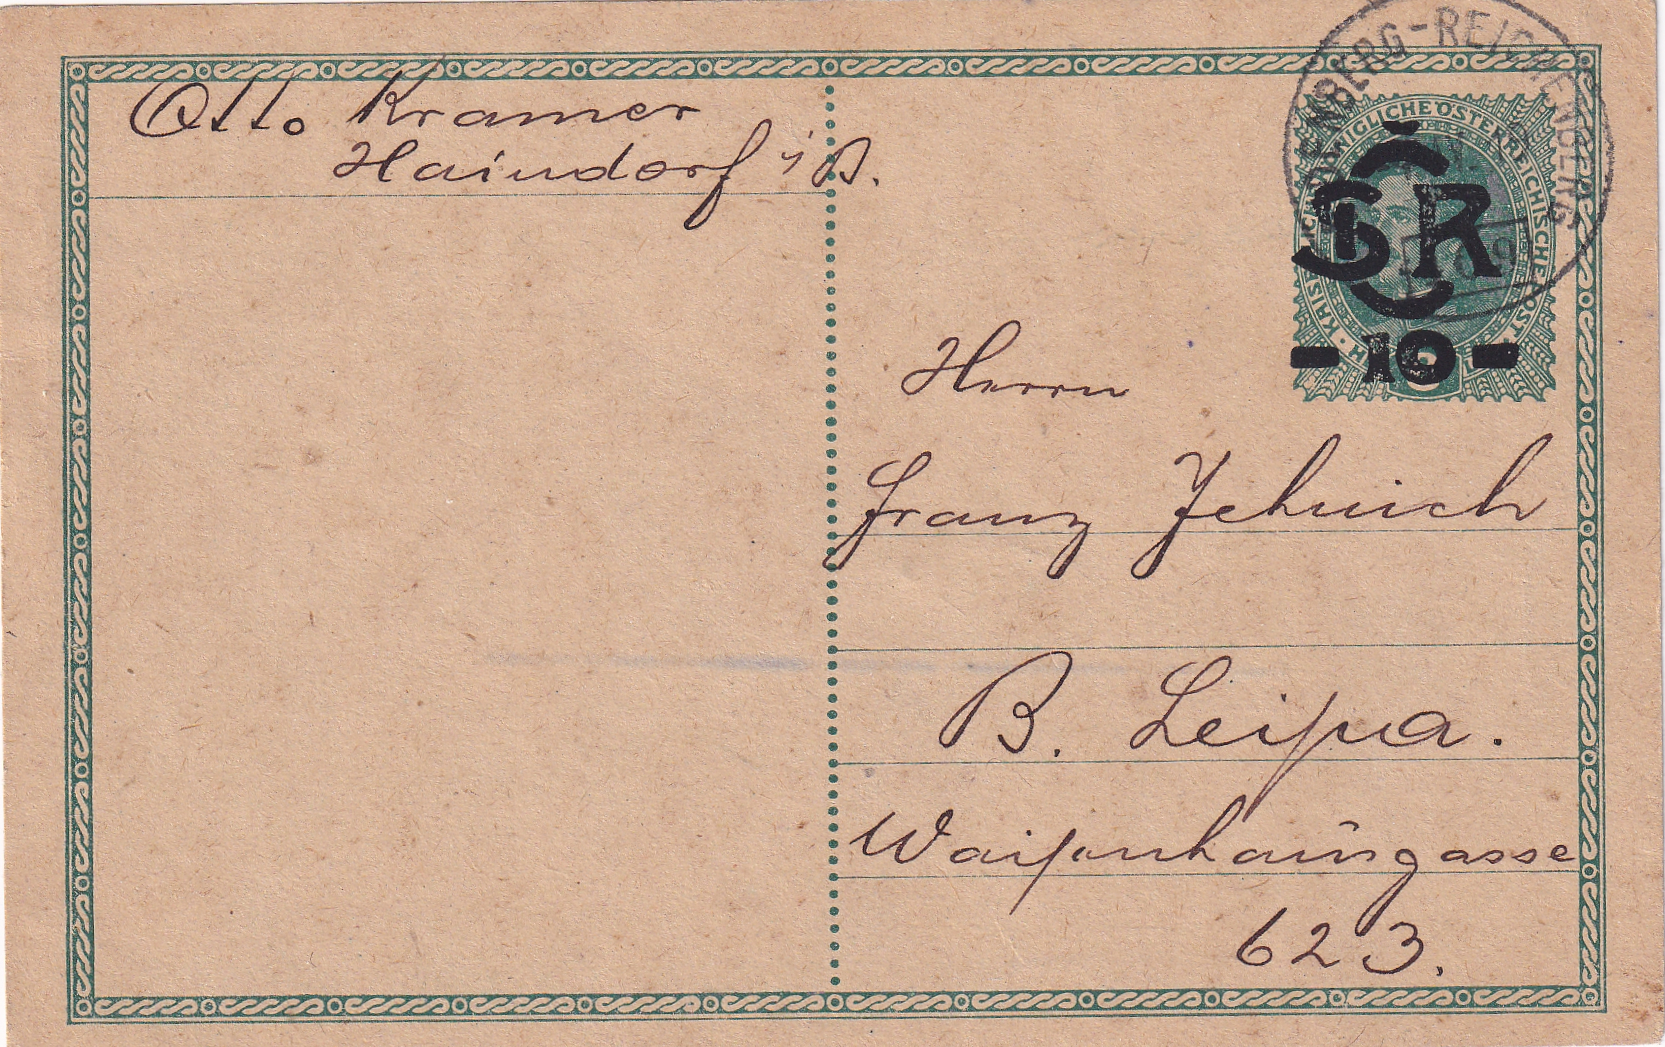 Otto Kramer
Haindorf i/B.
NBERG-REICHENBERG
KAISERLICHE KÖNIGLICHE ÖSTERREICHISCHE POST
ČSR
-10-
Herrn
Franz Jehnich
B. Leipa.
Waisenhausgasse
623.